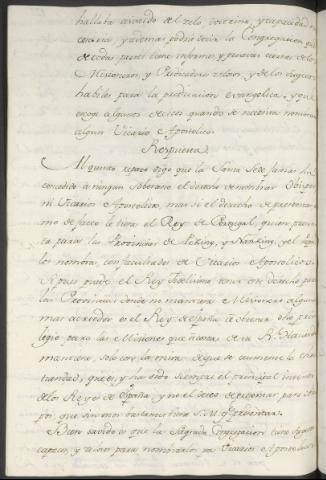 hallarse el zelo, doctrina, y capacidad
cesaria, y ademas podrá decir la Congregacion, que
de todas partes tiene informes, y pruevas
Misioneros, y Predicadores zelosos, y de los sugetos
habiles para la predicacion evangelica, y que
escoge algunos de estos quando se necesita nombrar
algun Vicario Apostolico.
Respuesta
Al quinto reparo digo que la Santa Sede jamas ha
concedido à ningun Soberano el derecho de nombrar Obispos
ni Vicarios Apostolicos, mas si el derecho de presentar
como de facto le tiene el Rey de Portugal, quien presen-
ta para las Provincias de Peking, y Nanking, y el Papa
los nombra, con facultades de Vicarios Apostolicos.
Si pues pudo el Rey Fidelisimo
las Provincias donde no mantiene Misioneros alguno
mas acreedor es el Rey de España à obtener este privi-
legio para las Misiones que
mantiene, solo con la mira de que se aumente la cris-
tiandad, que es, y ha sido siempre el principal intento
de los Reyes de España, y no el deseo de presentar para
que sin
Bien sabido es que la Sagrada Congregacion tiene sugetos
capaces, y zelosos para nombrarlos por Vicarios Apostolicos